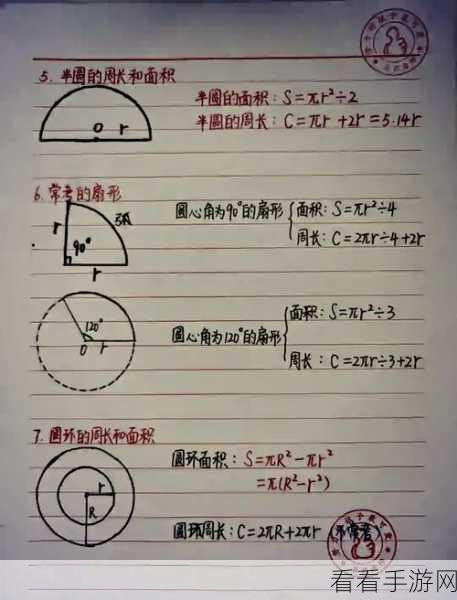 5. 半圆的周长和面积
半圆的面积：S=πr²÷2
半圆的周长：C=πr+2r=5.14r
O r
6. 常考的扇形
圆心角为90°的扇形
面积：S=πr²÷4
周长：C=2πr÷4+2r
r
90°
弧
r
圆心角为120°的扇形
面积：S=πr²÷3
周长：C=2πr÷3+2r
120°
O r
7. 圆环的周长和面积
圆环面积：S=πR²-πr²
=π(R²-r²)
r
R
圆环周长：C=2πR+2πr
不常考
看看手游网